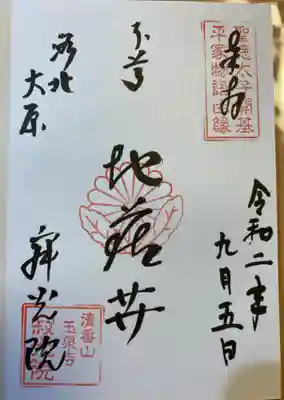 奉拝
聖徳太子開基
平家物語由縁
令和二年九月五日
本尊
地蔵𦬇
洛北
大原
寂光院
清香山
玉泉寺
寂光院